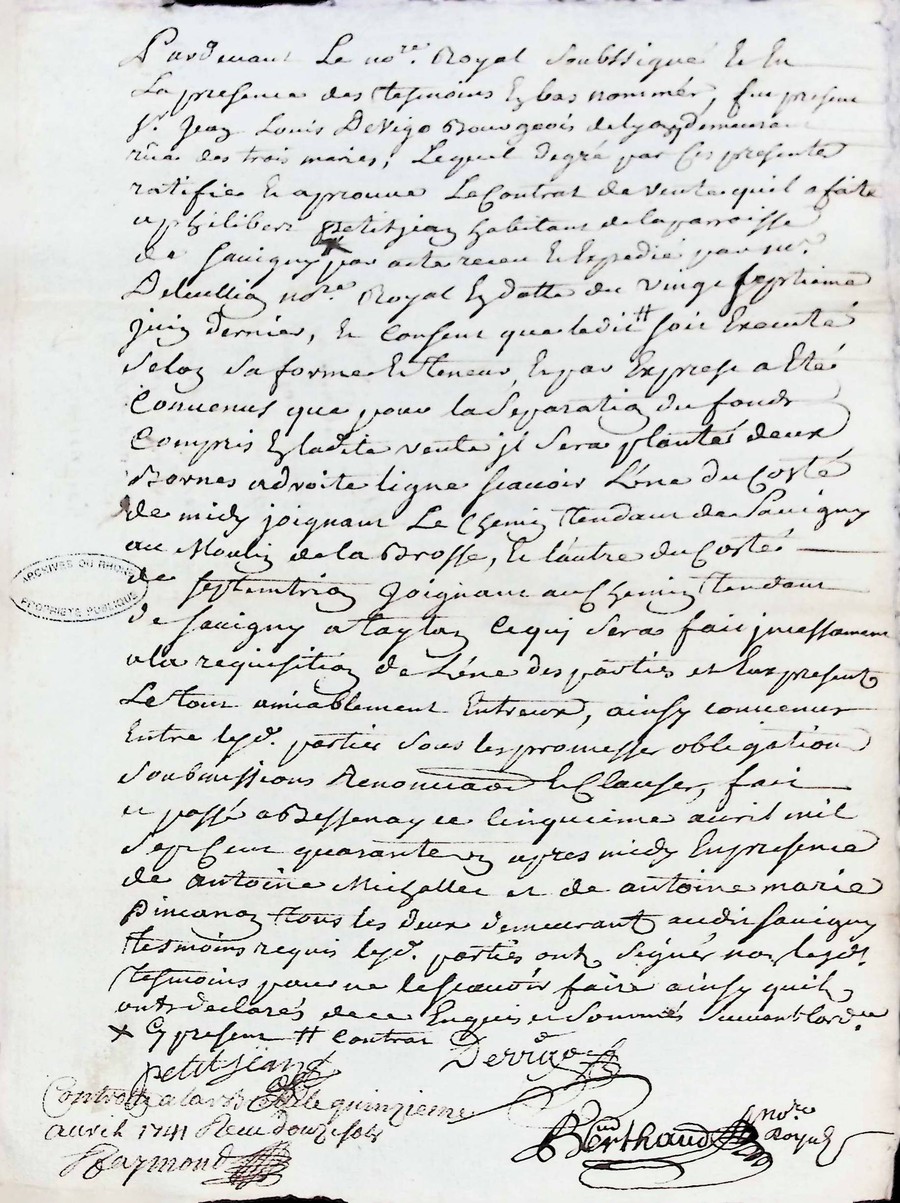 Pardevant Le no.re Royal Soubssigné Et En
La presence des tesmoins Enbas nommér, fut present
Sr. Jean Louis DeVigo Bourgeois de Lyon demeurant
rüe des trois maries, Lequel de gré par Ces presente
ratifie Et aprouve Le Contrat de vente quil a faite
a philibert petitjean habitant de la parroisse
de Savigny par acte receu Et Expedié par mr.
no.re Royal En datte du vingt septieme
juin dernier, Et Consent que ledit # soit Executé
Selon Sa forme Et teneur, Et par Exprese a Eté
Convenus que pour la Separation du fondz
Compris En ladite vente jl Sera planté deux
Bornes adroite ligne scavoir L'éne du Costé
de midy joignant Le Chemin tendant de Savigny
au Moulin de la Brosse, Et l'autre du Costé
de septemtrion Joignant au Chemin tendant
de Savigny a Laylon Cequi Sera fait jncessament
ala requisition de L'éne des parties et Eux present
Le tout amiablement Entreux, ainsy convenus
Entre lesd. parties sous les promesses obligation
Soubmissions Renonciaon Et Clauses, fait
et passé a Bessenay ce Cinquieme avril mil
Sept Cent quarante un apres midy En presence
de antoine Michallet et de antoine marie
Pincanon tous les deux demeurant audit Savigny
tesmoins requis lesd. parties ont Signér non lesdt.
tesmoins pour ne le scavoir faire ainsy quil
ont declarés de ce Enquis et Sommés Suivant lord.ce
x Cy present # Contrat
petitjean
Dervigo
Controllé a le quinzieme
avril 1741 Receu douze sols
Raymond
Berthaud no.re Royal
ARCHIVES DU RHÔNE
PROPRIÉTÉ PUBLIQUE